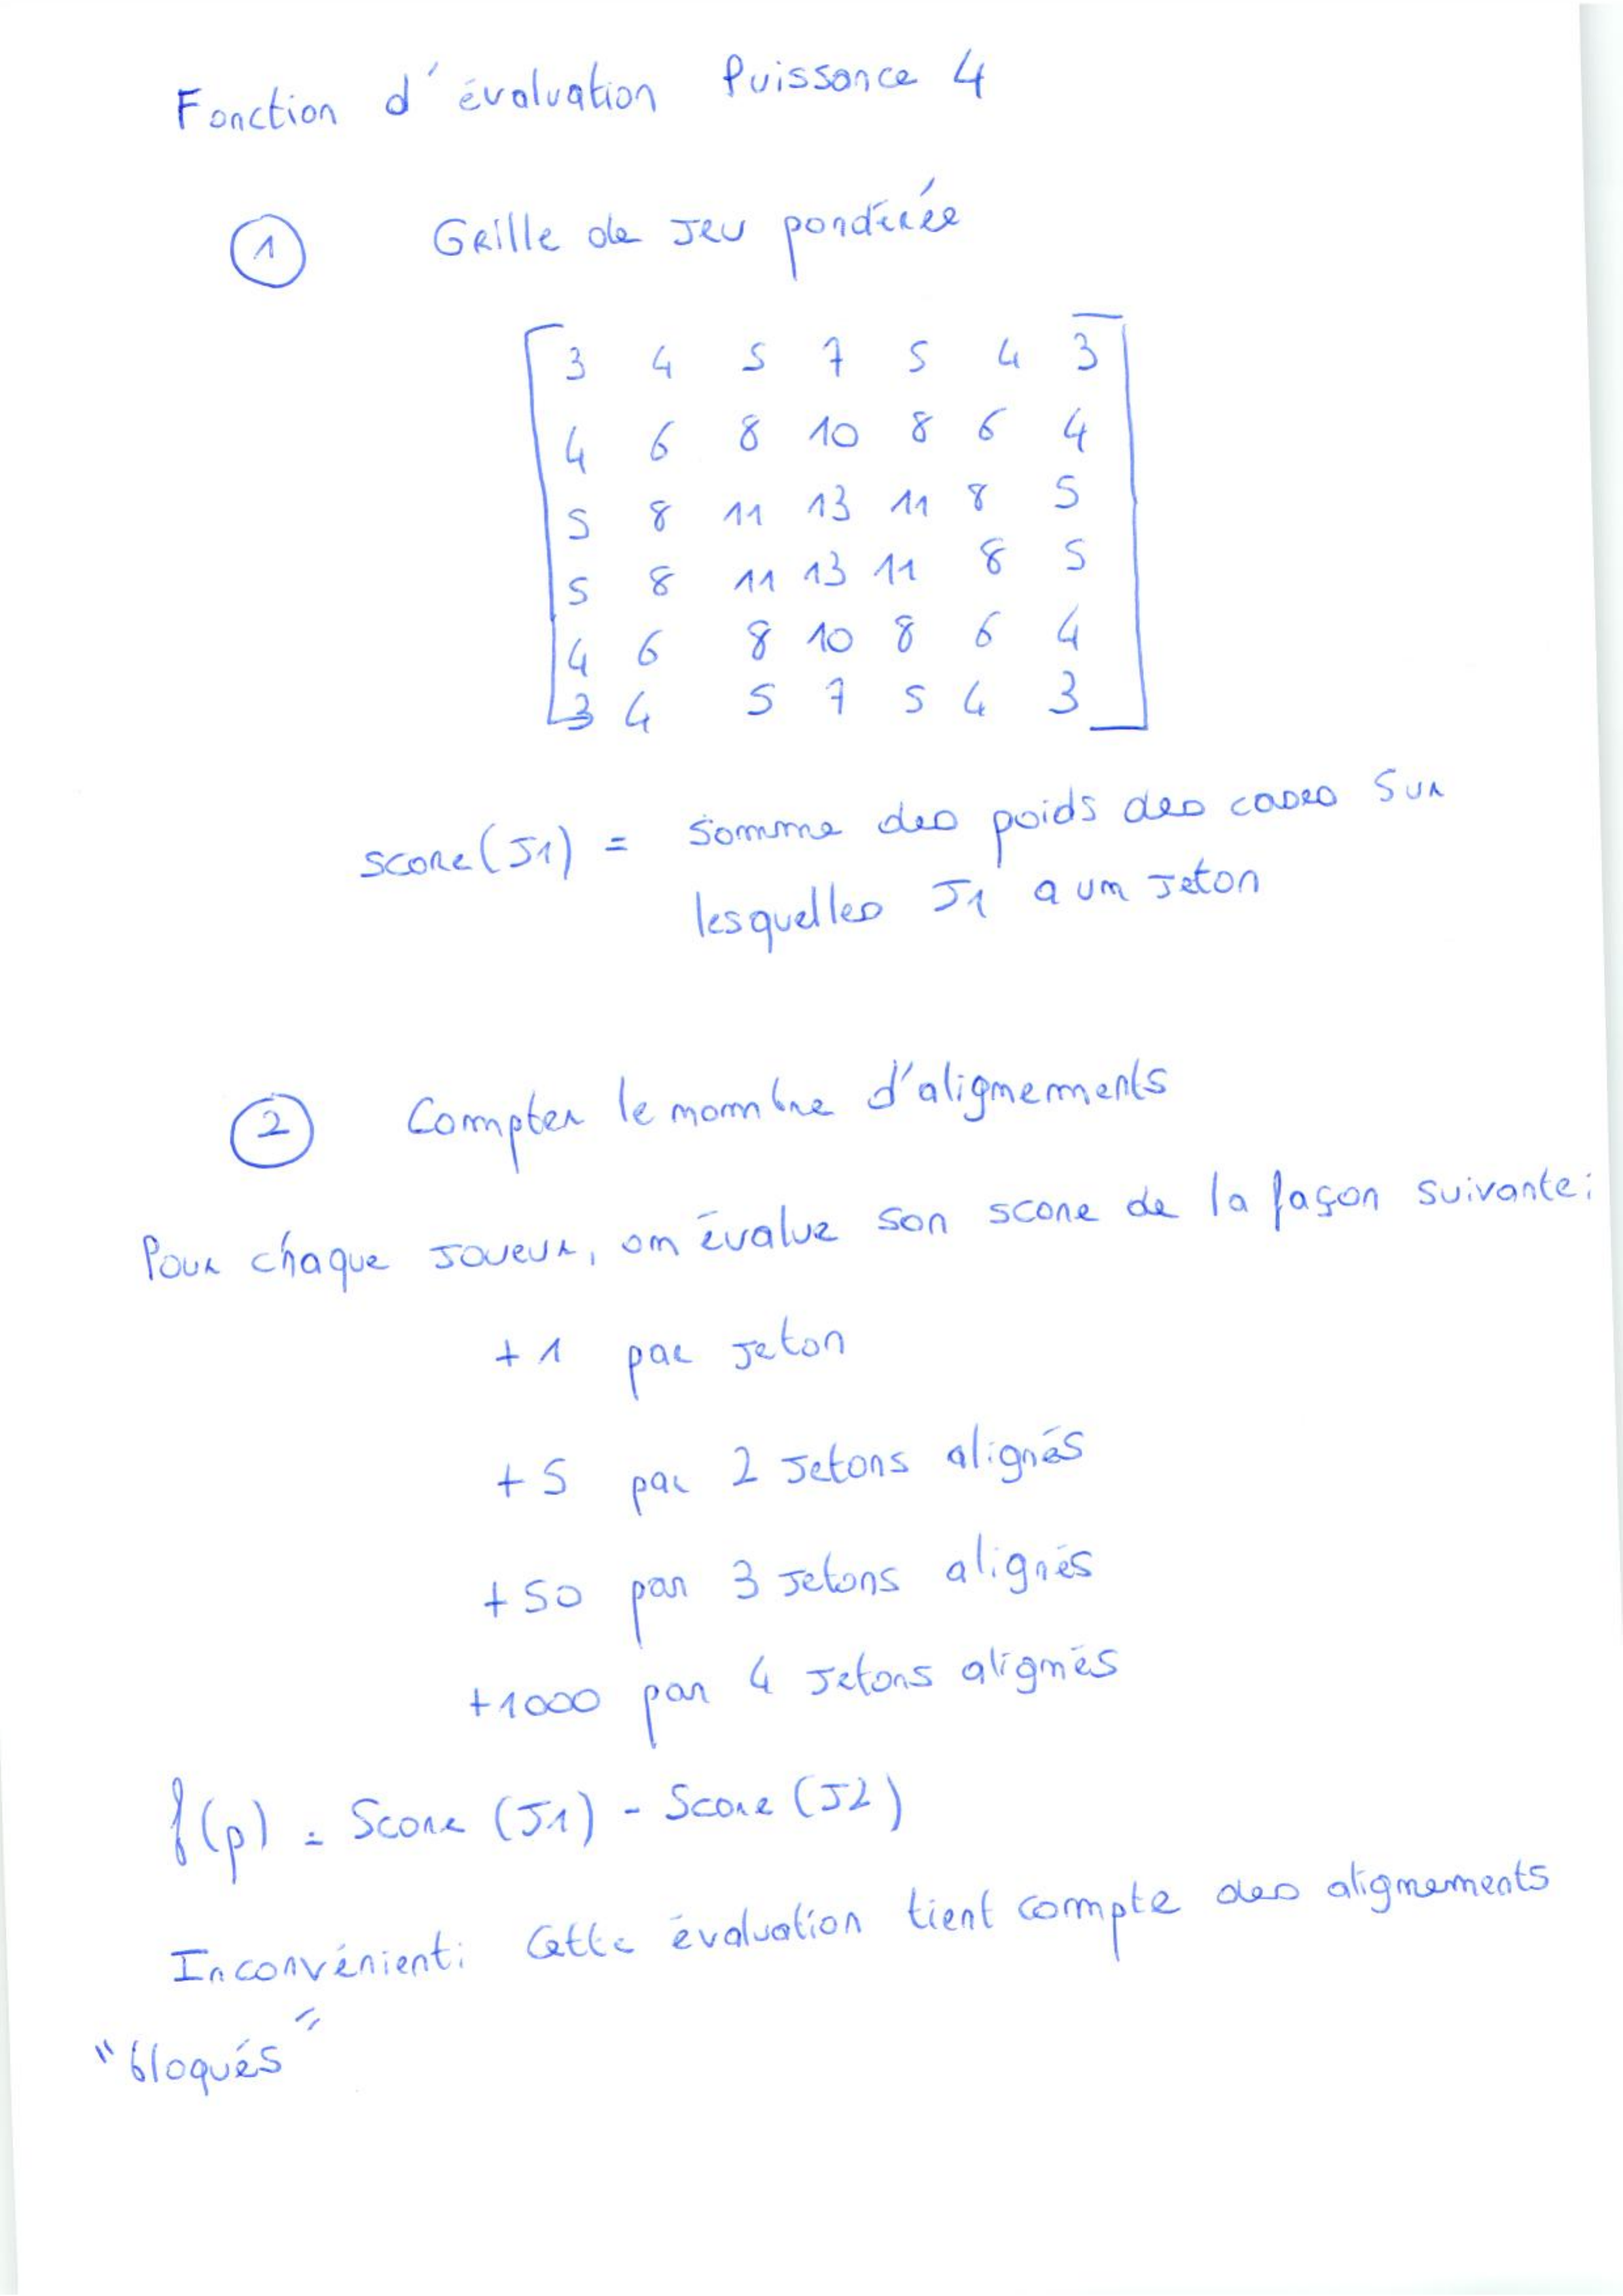 Fonction d'évaluation Puissance 4
1 Grille de jeu pondérée
3 4 5 7 5 4 3
4 6 8 10 8 6 4
5 8 11 13 11 8 5
5 8 11 13 11 8 5
4 6 8 10 8 6 4
3 4 5 7 5 4 3
score(J1) = somme des poids des cases sur
lesquelles J1 a un jeton
2 Compter le nombre d'alignements
Pour chaque joueur, on évalue son score de la façon suivante:
+1 par jeton
+5 par 2 jetons alignés
+50 par 3 jetons alignés
+1000 par 4 jetons alignés
f(p) = Score (J1) - Score (J2)
Inconvénient: Cette évaluation tient compte des alignements
"bloqués"